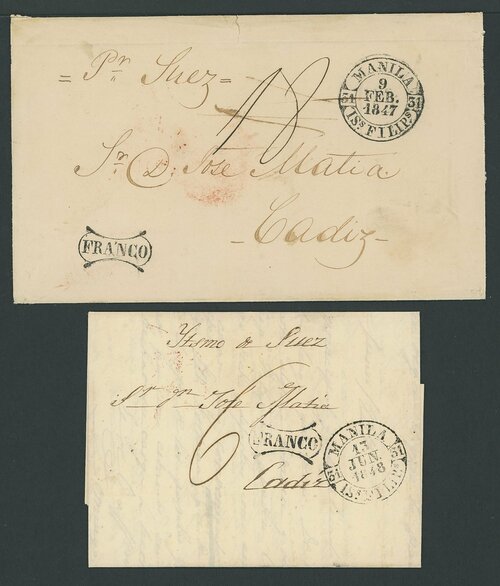 = Pr Suez =
18
MANILA
9
FEB.
1847
31 31
ISs FILIPs
Sr. D. Jose Matia.
- Cadiz -
FRANCO
Ytsmo de Suez
Sr Dn Jose Matia
6
FRANCO
Cadiz
MANILA
13
JUN.
1848
31 31
ISs FILIPs